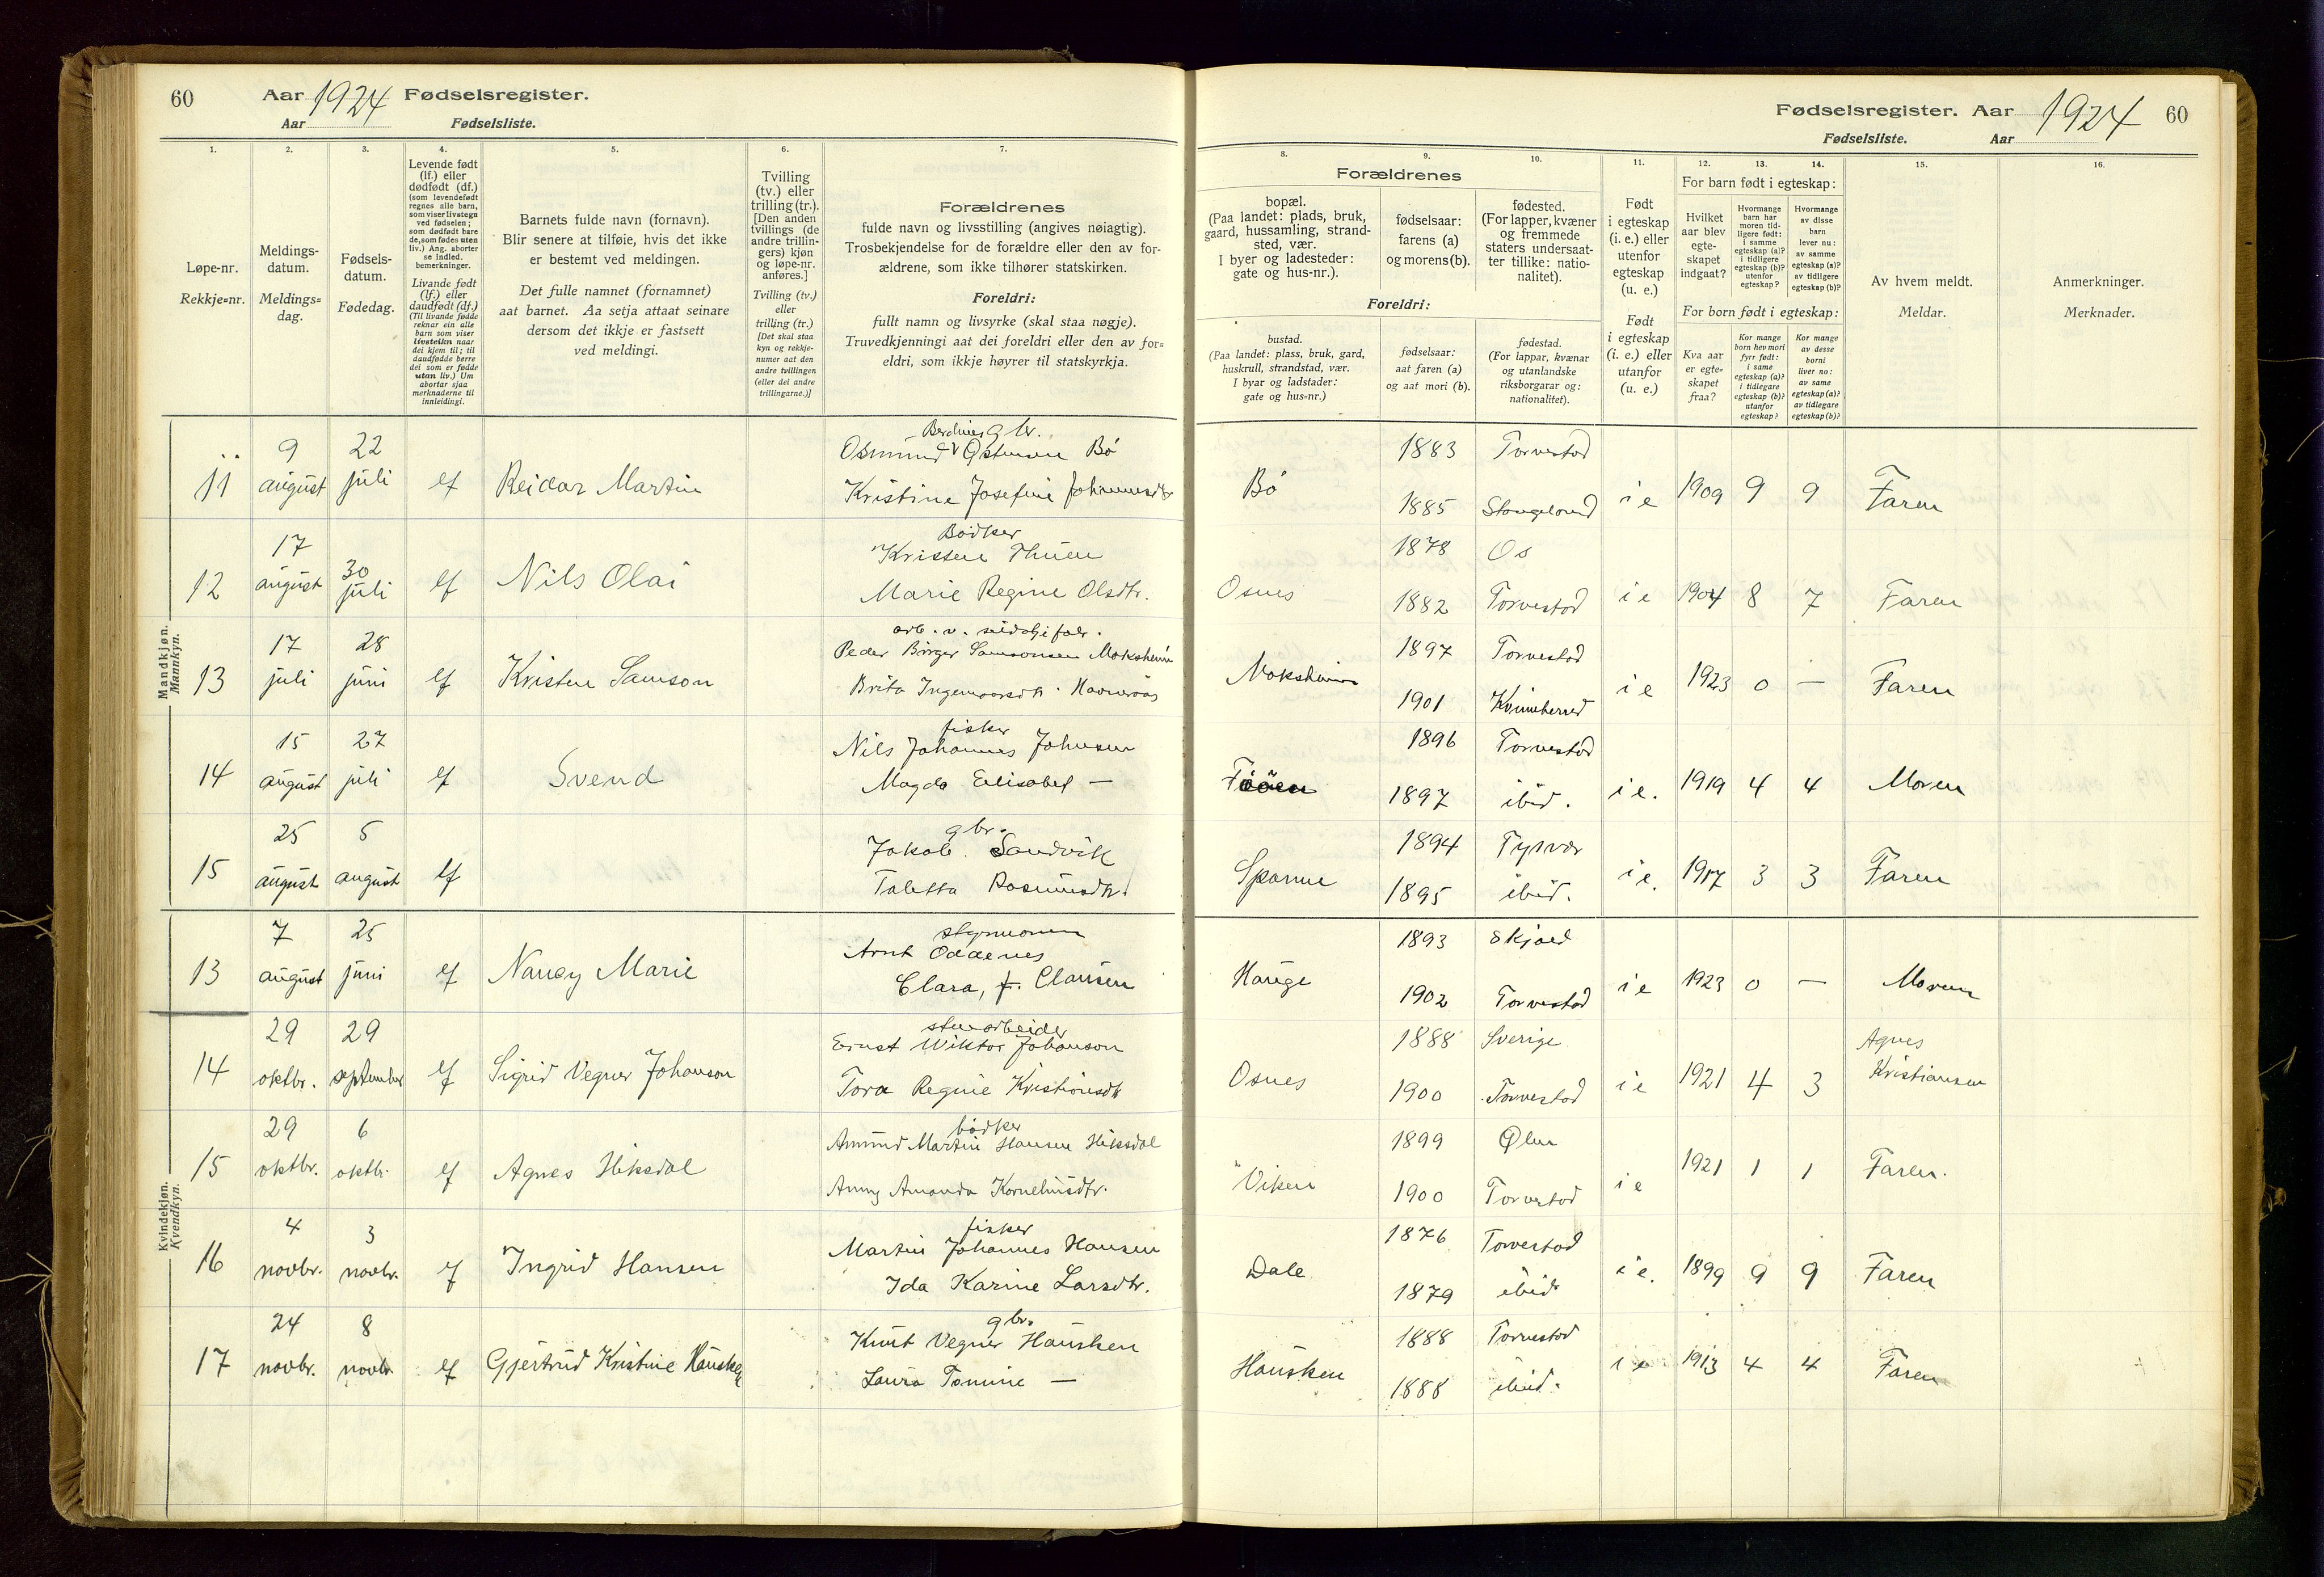 60 Aar 1924 Fødselsregister.
Aar Fødselsliste.
1. 2. 3. 4. 5. 6. 7.
Løpe-nr.
Rekkje=nr.
Meldings-
datum.
Meldings=
dag.
Fødsels-
datum.
Fødedag.
Levende født
(lf.) eller
dødfødt (df.)
(som levendefødt
regnes alle barn,
som viser livstegn
ved fødselen;
som dødfødt bare
de, som fødes uten
liv.) Ang. aborter
se indled.
bemerkninger.
Livande født
(lf.) eller
daudfødt (df.)
(Til livande fødde
reknar ein alle
barn som viser
livsteikn naar
dei kjem til; til
daudfødde berre
dei som er fødde
utan liv.) Um
abortar sjaa
merknaderne til
innleidingi.
Barnets fulde navn (fornavn).
Blir senere at tilføie, hvis det ikke
er bestemt ved meldingen.
Det fulle namnet (fornamnet)
aat barnet. Aa setja attaat seinare
dersom det ikkje er fastsett
ved meldingi.
Tvilling
(tv.) eller
trilling (tr.).
[Den anden
tvillings (de
andre trillin-
gers) kjøn
og løpe-nr.
anføres.]
Tvilling (tv.)
eller
trilling (tr.)
[Det skal staa
kyn og rekkje-
numer aat den
andre tvillingen
(eller dei andre
trillingarne.)]
Forældrenes
fulde navn og livsstilling (angives nøiagtig).
Trosbekjendelse for de forældre eller den av for-
ældrene, som ikke tilhører statskirken.
Foreldri:
fullt namn og livsyrke (skal staa nøgje).
Truvedkjenningi aat dei foreldri eller den av for=
eldri, som ikkje høyrer til statskyrkja.
Mandkjøn.
Mannkyn.
11 9 august 22 juli lf Reidar Martin
gbr.
Osmund Østensen Bö
Kristine Josefine Johannesdtr
12 17 august 30 juli lf Nils Olai
Bödker
Kristen Thuen
Marie Regine Olsdtr.
13 17 juli 28 juni lf Kristen Samson
arb. v. sildoljefabr.
Peder Birger Samsonsen Moksheim
Brita Ingemarsdtr. Havneraas
14 15 august 27 juli lf Svend
fisker
Nils Johannes Johnsen
Magda Elisabet —
15 25 august 5 august lf
gbr.
Jakob Sandvik
Taletta Rasmusdtr.
Kvindekjøn.
Kvendkyn.
13 7 august 25 juni lf Nancy Marie
styrmann
Arnt Oddenes
Clara, f. Clausen
14 29 oktbr. 29 september lf Sigrid Vegner Johanson
stenarbeider
Ernst Wiktor Johanson
Tora Regine Kristiansdtr
15 29 oktbr. 6 oktbr. lf Agnes Hiksdal
bödker
Amund Martin Hansen Hiksdal
Anny Amanda Korneliusdtr.
16 4 novbr. 3 novbr. lf Ingrid Hansen
fisker
Martin Johannes Hansen
Ida Karine Larsdtr.
17 24 novbr. 8 novbr. lf Gjertrud Kristine Hausken
gbr.
Knut Vegner Hausken
Laura Tomine —
Fødselsregister. Aar 1924 60
Fødselsliste. Aar
8. 9. 10. 11. 12. 13. 14. 15. 16.
Forældrenes
bopæl.
(Paa landet: plads, bruk,
gaard, hussamling, strand-
sted, vær.
I byer og ladesteder:
gate og hus-nr.).
fødselsaar:
farens (a)
og morens (b).
fødested.
(For lapper, kvæner
og fremmede
staters undersaat-
ter tillike: natio-
nalitet).
Foreldri:
bustad.
(Paa landet: plass, bruk, gard,
huskrull, strandstad, vær.
I byar og ladstader:
gate og hus=nr.)
fødselsaar:
aat faren (a)
og aat mori (b).
fødestad.
(For lappar, kvænar
og utanlandske
riksborgarar og:
nationalitet).
Født
i egteskap
(i. e.) eller
utenfor
egteskap
(u. e.)
Født
i egteskap
(i. e.) eller
utanfor
(u. e.)
For barn født i egteskap:
Hvilket
aar blev
egte-
skapet
indgaat?
Hvormange
barn har
moren tid-
ligere født:
i samme
egteskap (a)?
i tidligere
egteskap (b)?
utenfor
egteskap?
Hvormange
av disse
barn
lever nu:
av samme
egteskap (a)?
av tidligere
egteskap (b)?
For born født i egteskap:
Kva aar
er egte=
skapet
fraa?
Kor mange
born hev mori
fyrr født:
i same
egteskap (a)?
i tidlegare
egteskap (b)?
utanfor
egteskap?
Kor mange
av desse
borni
liver no:
av same
egteskap (a)?
av tidlegare
egteskap (b)?
Av hvem meldt.
Meldar.
Anmerkninger.
Merknader.
Bö 1883 Torvestad
1885 Stangeland i e 1909 9 9 Faren
Osnes 1878 Os
1882 Torvestad i e 1904 8 7 Faren
Moksheim 1897 Torvestad
1901 Kvinneherred i e 1923 0 — Faren
1896 Torvestad
1897 ibid. i e. 1919 4 4 Moren
Spanne 1894 Tysvær
1895 ibid. i e. 1917 3 3 Faren
Hauge 1893 Skjold
1902 Torvestad i e 1923 0 — Moren
Osnes 1888 Sverige
1900 Torvestad i e 1921 4 3 Agnes
Kristiansen
Viken 1899 Ølen
1900 Torvestad i e 1921 1 1 Faren.
Dale 1876 Torvestad
1879 ibid. i e. 1899 9 9 Faren
Hausken 1888 Torvestad
1888 ibid. i e 1913 4 4 Faren